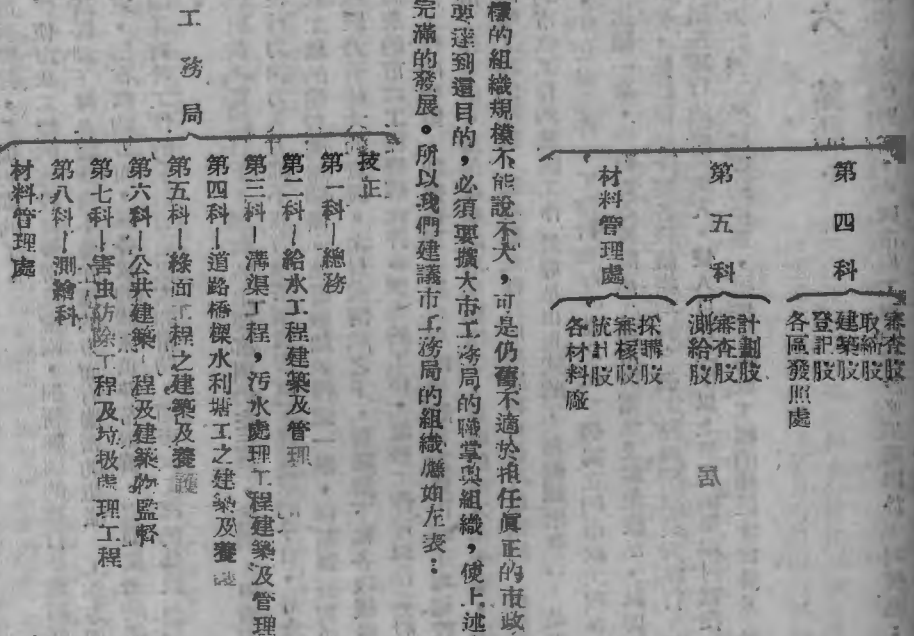 第四科
審查股
取締股
建築股
登記股
各區發照處
第五科
計劃股
審查股
測給股
材料管理處
採購股
審核股
統計股
各材料廠
樣的組織規模不能說不大，可是仍舊不適於担任眞正的市政
要達到這目的，必須要擴大市工務局的職掌與組織，使上述
完滿的發展。所以我們建議市工務局的組織應如左表：
工務局
技正
第一科－總務
第二科－給水工程建築及管理
第三科－溝渠工程，汚水處理工程建築及管理
第四科－道路橋樑水利塘工之建築及養護
第五科－綠面工程之建築及養護
第六科－公共建築工程及建築物監督
第七科－害虫防除工程及垃圾處理工程
第八科－測繪科
材料管理處